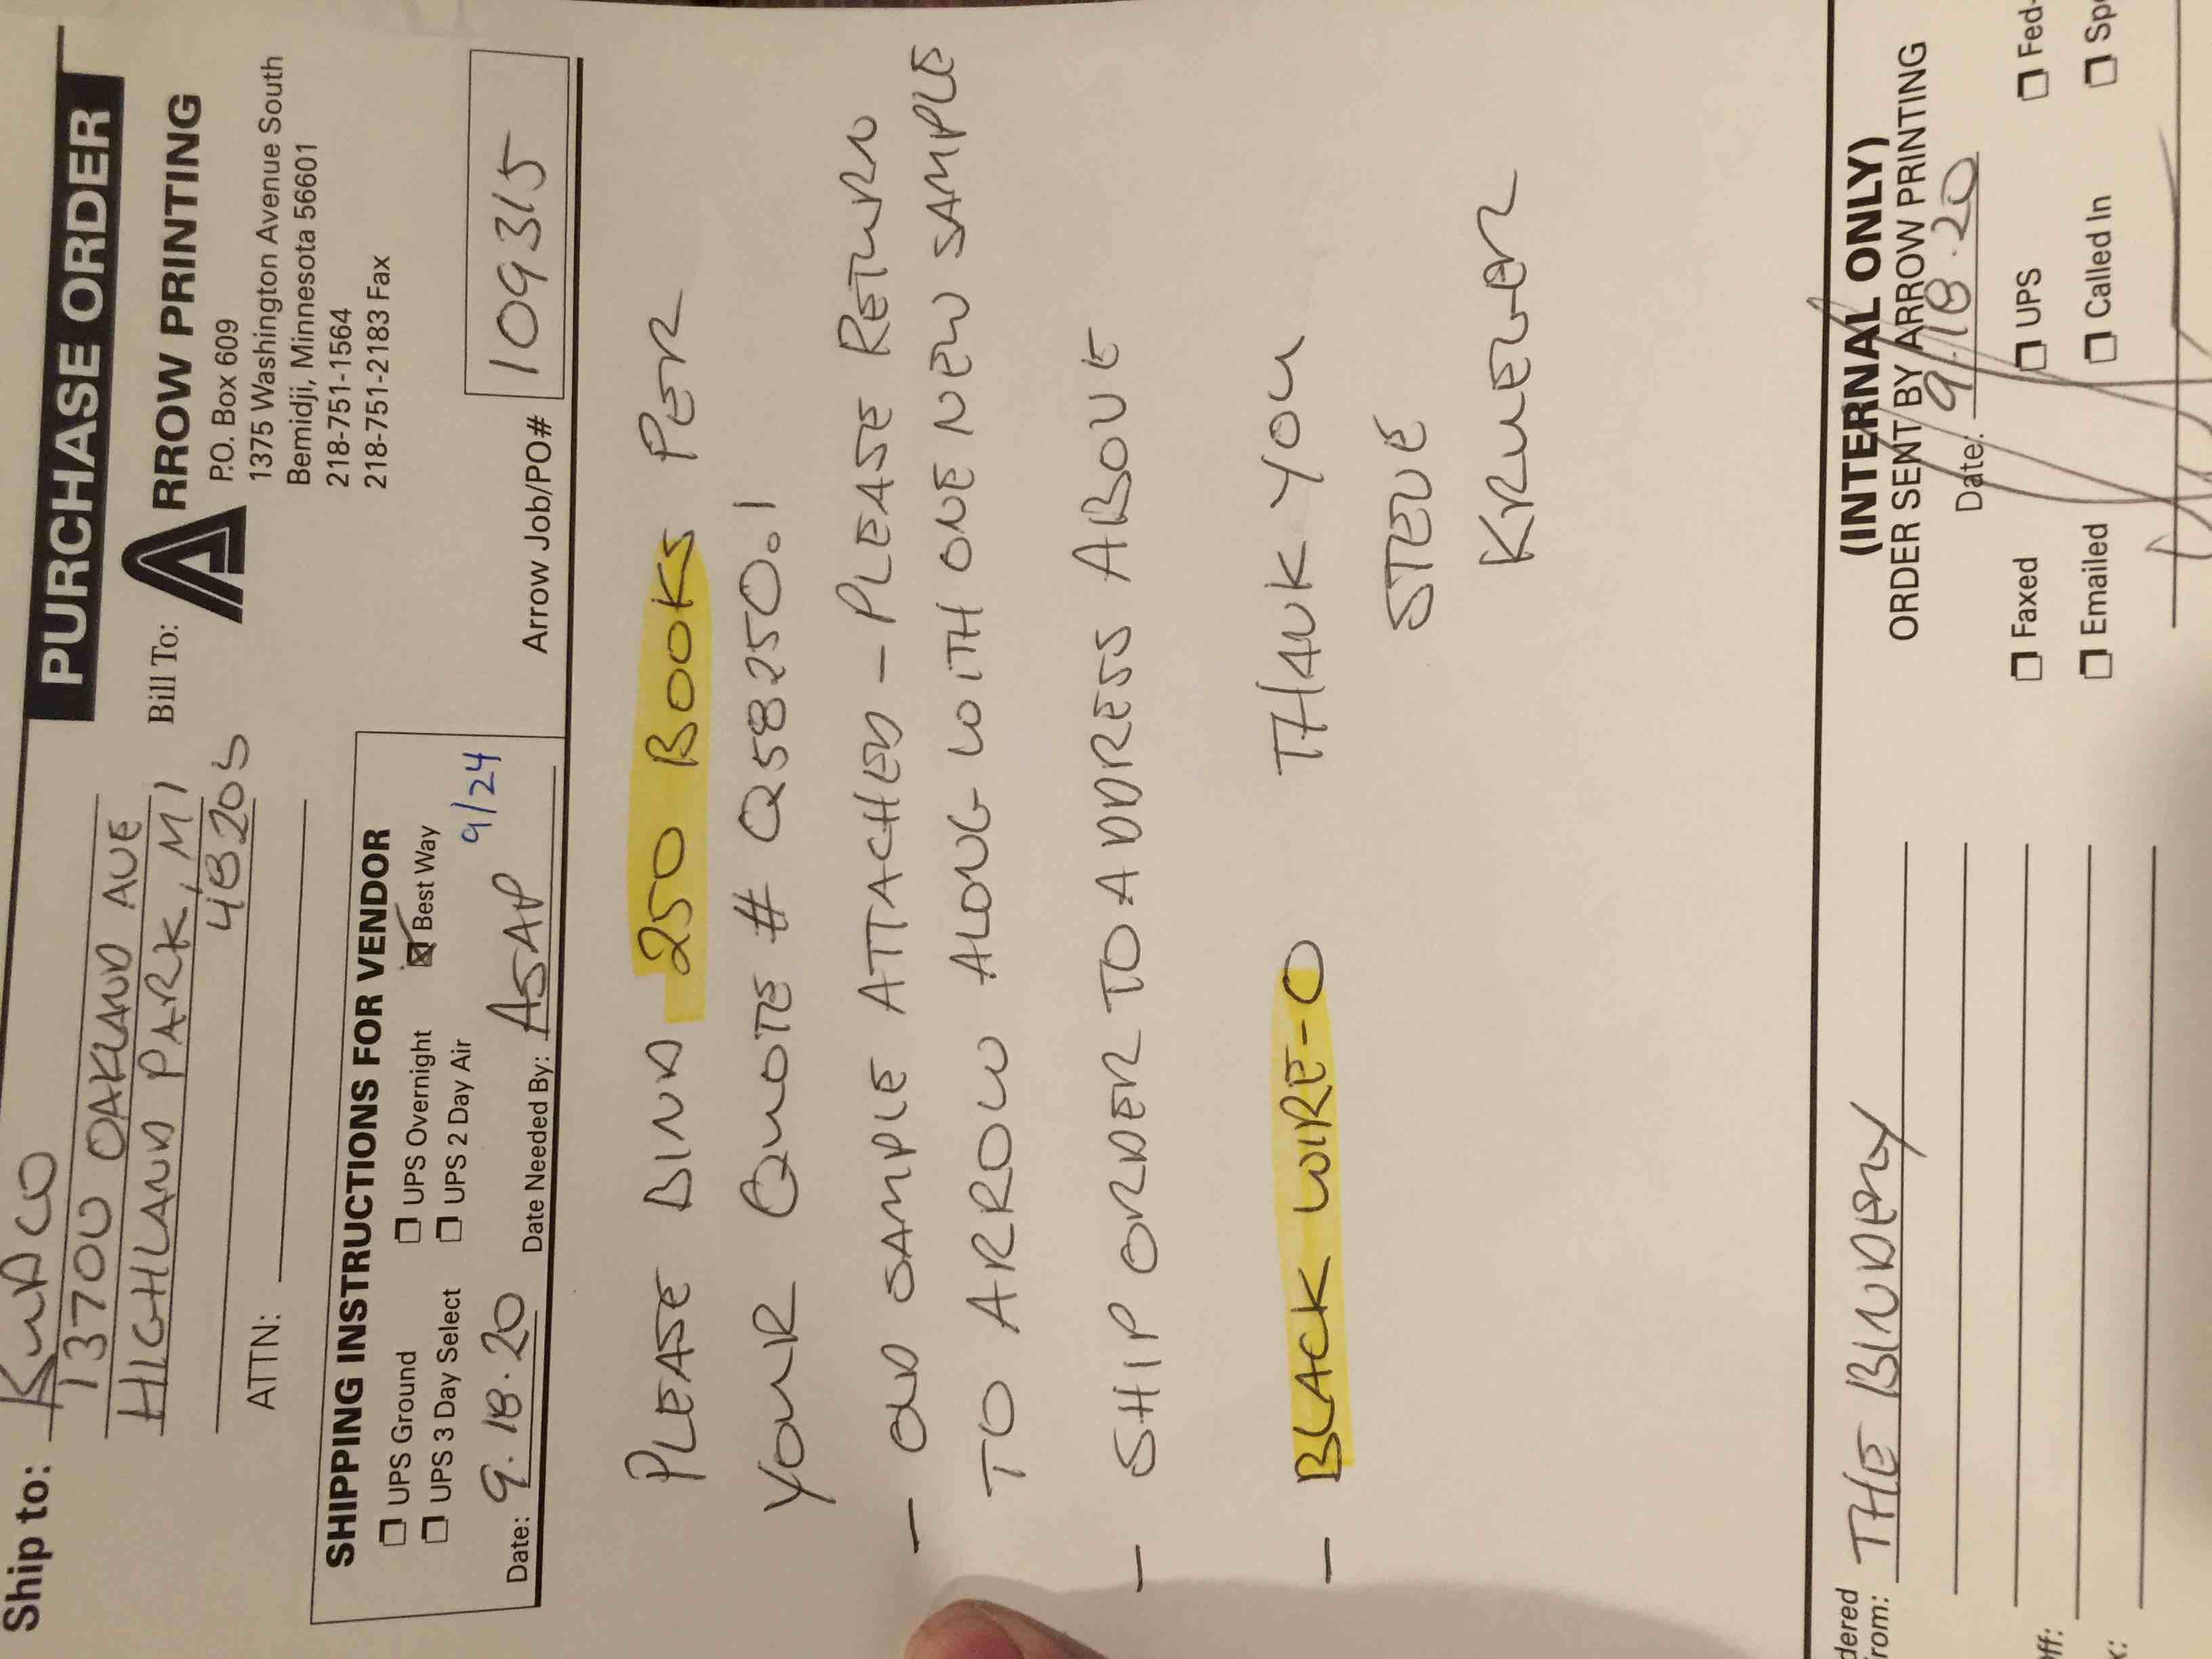 PURCHASE ORDER
Ship to: KUDCO
13700 OAKLAND AVE
HIGHLAND PARK, MI
48203
ATTN:
Bill To:
ARROW PRINTING
P.O. Box 609
1375 Washington Avenue South
Bemidji, Minnesota 56601
218-751-1564
218-751-2183 Fax
SHIPPING INSTRUCTIONS FOR VENDOR
☐ UPS Ground ☐ UPS Overnight ☒ Best Way
☐ UPS 3 Day Select ☐ UPS 2 Day Air 9/24
Date: 9.18.20 Date Needed By: ASAP
Arrow Job/PO# 109315
PLEASE BIND 250 BOOKS PER
YOUR QUOTE # Q58250.1
- OLD SAMPLE ATTACHED - PLEASE RETURN
TO ARROW ALONG WITH ONE NEW SAMPLE
- SHIP ORDER TO ADDRESS ABOVE
- BLACK WIRE-O THANK YOU
STEVE
KRUEGER
(INTERNAL ONLY)
ORDER SENT BY ARROW PRINTING
Date: 9.18.20
☐ Faxed ☐ UPS ☐ Fed-
☐ Emailed ☐ Called In ☐ Spe
dered
rom: THE BINDERY
ff:
x: